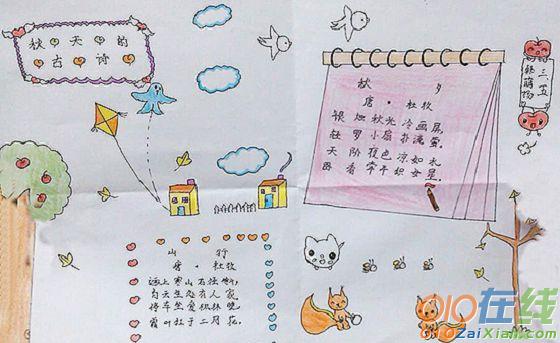 秋天的
古诗
秋夕
唐·杜牧
银烛秋光冷画屏,
罗小扇扑流萤.
天阶夜色凉如水,
卧看牵牛织女星.
山行
唐·杜牧
远上寒山石径斜,
白云生处有人家,
停车坐爱枫林晚,
霜叶红于二月花.
010在线
010ZaiXian.Com